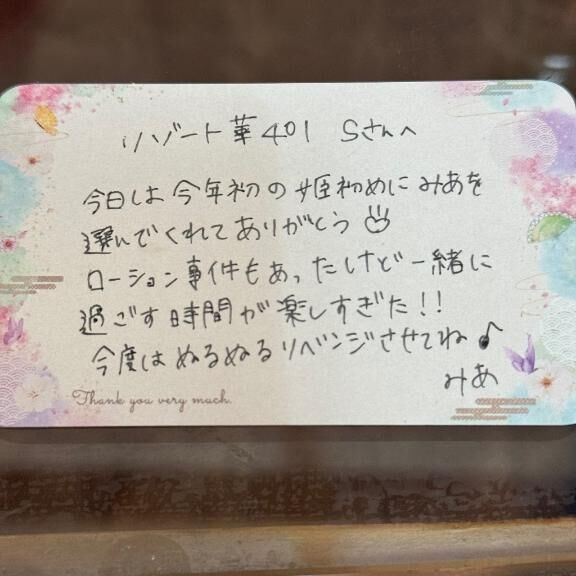 リゾート華401 Sさんへ
今日は今年初の姫初めにみあを
選んでくれてありがとう
ローション事件もあったけど一緒に
過ごす時間が楽しすぎた!!
今度はぬるぬるリベンジさせてね♪
みあ
Thank you very much.